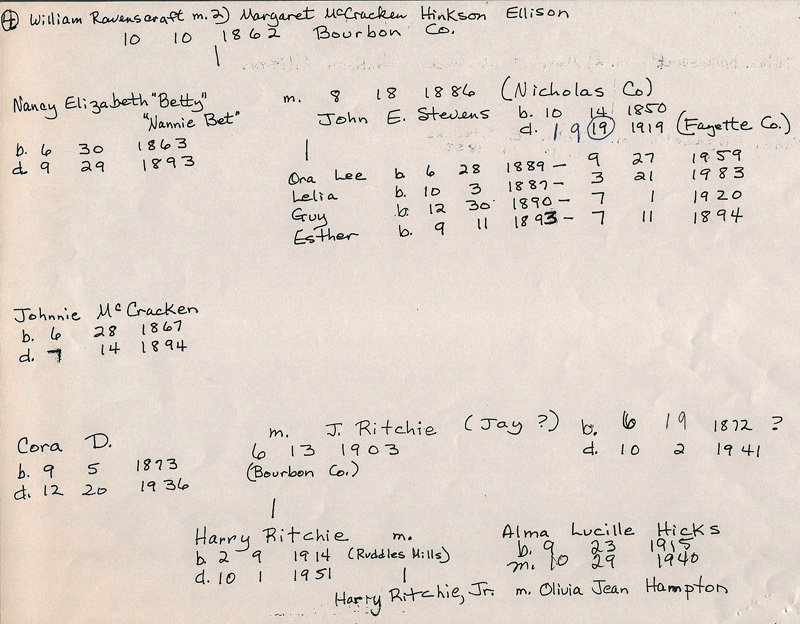 ④ William Ravenscraft m. 2) Margaret McCracken Hinkson Ellison
10 10 1862 Bourbon Co.
Nancy Elizabeth "Betty"
"Nannie Bet"
b. 6 30 1863
d. 9 29 1893
m. 8 18 1886 (Nicholas Co)
John E. Stevens b. 10 14 1850
d. 1 9 19 1919 (Fayette Co.)
Ora Lee b 6 28 1889 - 9 27 1959
Lelia b. 10 3 1887 - 3 21 1983
Guy b. 12 30 1890 - 7 1 1920
Esther b. 9 11 1893 - 7 11 1894
Johnnie McCracken
b. 6 28 1867
d. 7 14 1894
Cora D.
b. 9 5 1873
d. 12 20 1936
m. J. Ritchie (Jay ?) b. 6 19 1872 ?
6 13 1903 d. 10 2 1941
(Bourbon Co.)
Harry Ritchie m. Alma Lucille Hicks
b. 2 9 1914 (Ruddles Mills) b. 9 23 1915
d. 10 1 1951 m. 10 29 1940
Harry Ritchie, Jr. m. Olivia Jean Hampton